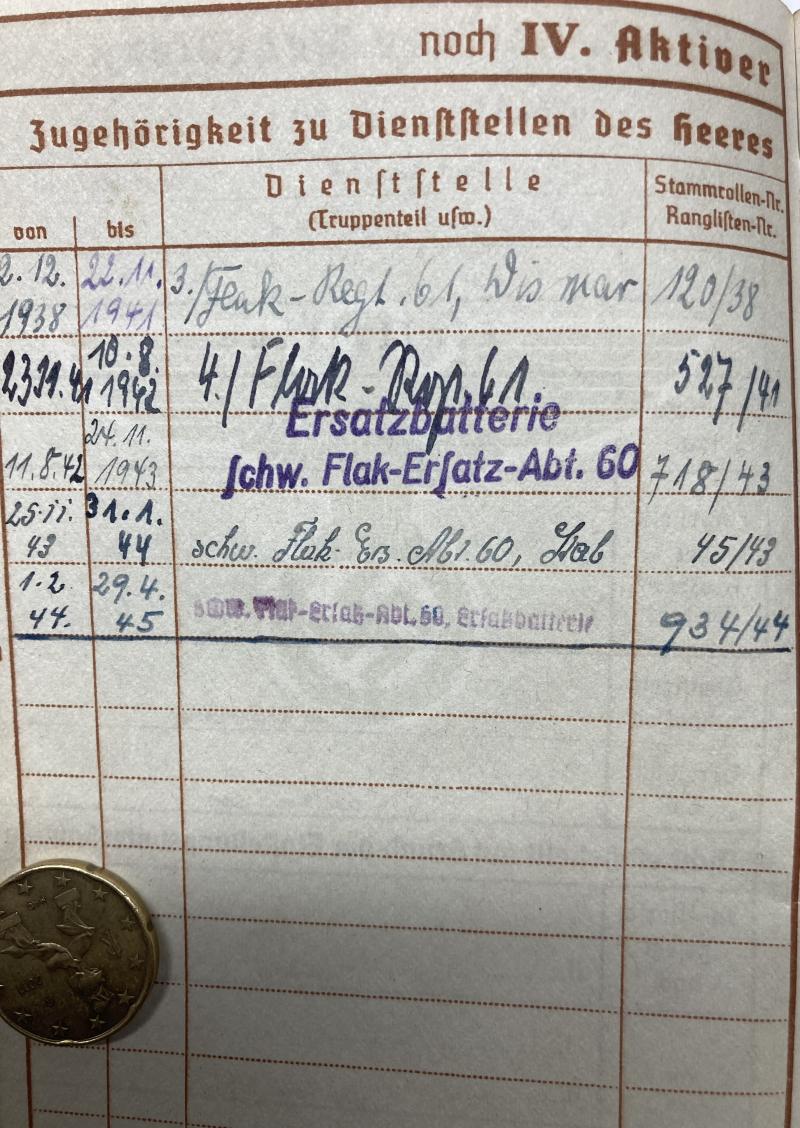 noch IV. Aktiver
Zugehörigkeit zu Dienststellen des Heeres
von bis Dienststelle (Truppenteil usw.) Stammrollen-Nr. Ranglisten-Nr.
2.12. 1938 22.11. 1941 3./Flak-Regt. 61, Wismar 120/38
23.11.41 10.8. 1942 4./Flak-Rgt. 61. 527/41
11.8.42 24.11. 1943 Ersatzbatterie schw. Flak-Ersatz-Abt. 60 718/43
25.11. 43 31.1. 44 schw. Flak-Ers. Abt. 60, Stab 45/43
1.2. 44. 29.4. 45 schw. Flak-Ersatz-Abt. 60, Ersatzbatterie 934/44